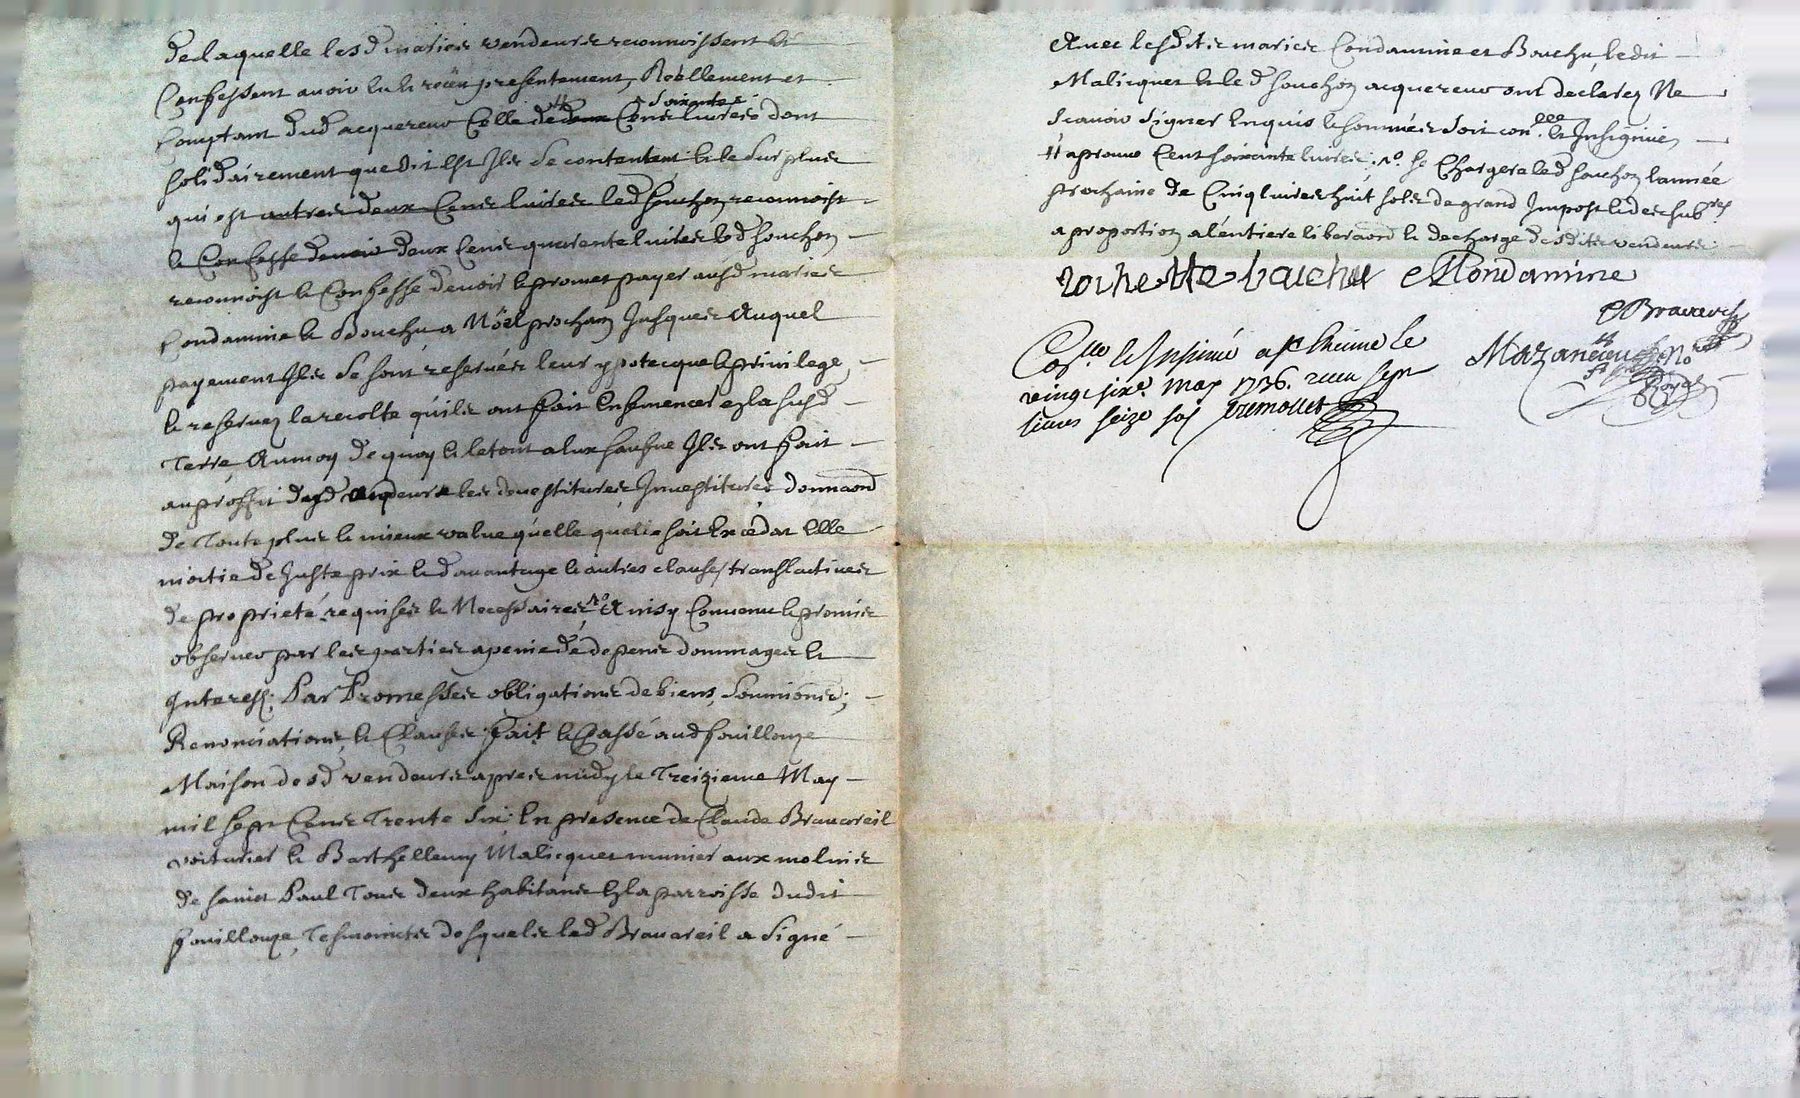 de laquelle lesd maries vendeurs reconnoissent et
Confessent avoir eu et reçeu presentement, Reellement et
Comptant dud acquereur Celle de deux Cens soixante livres dont
solidairement que dit est Ils se contentent et le surplus
qui est autres deux Cens livres led souchon reconnoist
et Confesse devoir deux Cens quarente livres led souchon
reconnoist et Confesse devoir et promet payer ausd maries
Condamine et Bouchu a Nöel prochain Jusques Auquel
payement Ils se sont reservés leur ypotecque et privilege,
et reservez la recolte qu'ils ont fait Ensemencer en la susd
Terre, Aumoy de quoy et le tout a lux sausue Ils ont fait
au proffit dud les devestitures Investitures donnaõn
de Toute plus et mieux value qu'elle quelle soit Excedat Elle
moitie de Juste prix et davantage et autres clauses translatives
de proprieté, requises et Necessaires, ro Ainsy Convenu et promis
observer par les parties a peine de depens dommages et
Interest; Par Promesses obligations de biens, soumiõns;
Renonciations, et Clauses fait et Passé aud fouillouze
Maison desd vendeurs apres midy le Treizieme May
mil sept Cens Trente six: En presence de Claude Bravareil
voiturier et Barthellemy Malicquet munier aux molins
de sainct Paul Tous deux habitans En la parroisse dudit
fouillouze, Tesmoincts desquels led Bravareil a signé
Avec lesdits maries Condamine et Bouchu, ledit
Malicquet et led souchon acquereur ont declarez Ne
scavoir signer Enquis et sommés soit con.lle et Insignuez
aprouve Cent soixante livres; ro. se Chargera led souchon l'année
prochaine de Cinq livres huit sols de grand Impost et des subres
a proportion a l'entiere liberaõn et decharge desdits vendeurs
rochette bouchu Condamine
Bravareil
Mazancieu No.re
Royal
Con.lle et Insinué a St Chaumd le
vingt six.e may 1736. receu sept
livres seize sols tremollet